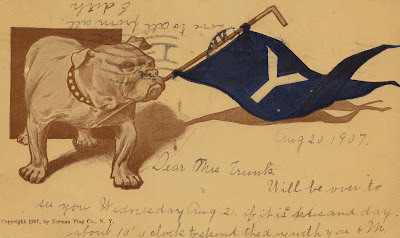 Love to all from all
Edith
Y
Aug 20 1907.
Dear Mrs Trunk.
Will be over to
see you Wednesday Aug 21 if it is a day.
Copyright 1907, by Forman Flag Co., N. Y.
about 10 o'clock to spend the day with you & M.